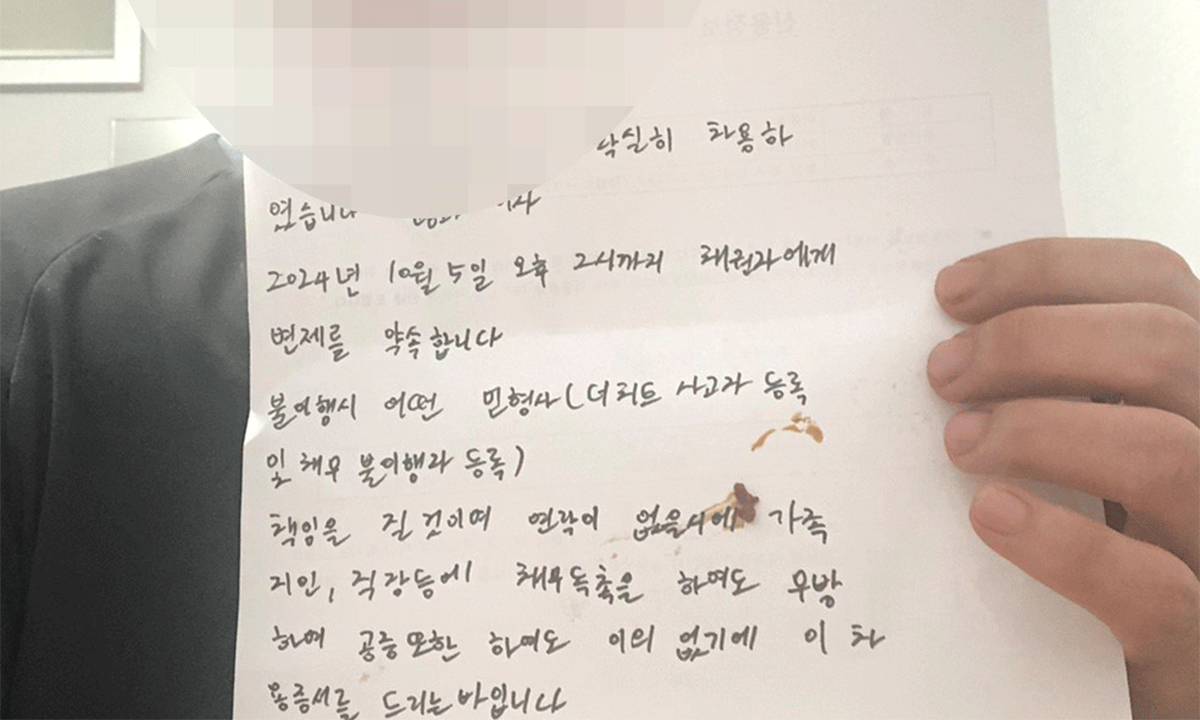 낙실히 차용하
였습니다
2024년 10월 5일 오후 2시까지 채권자에게
변제를 약속합니다
불이행시 어떤 민형사(더치트 사고자 등록
및 채무 불이행자 등록)
책임을 질 것이며 연락이 없을시에 가족
지인, 직장등에 채무독촉을 하여도 무방
하며 공증또한 하여도 이의 없기에 이 차
용증서를 드리는바입니다